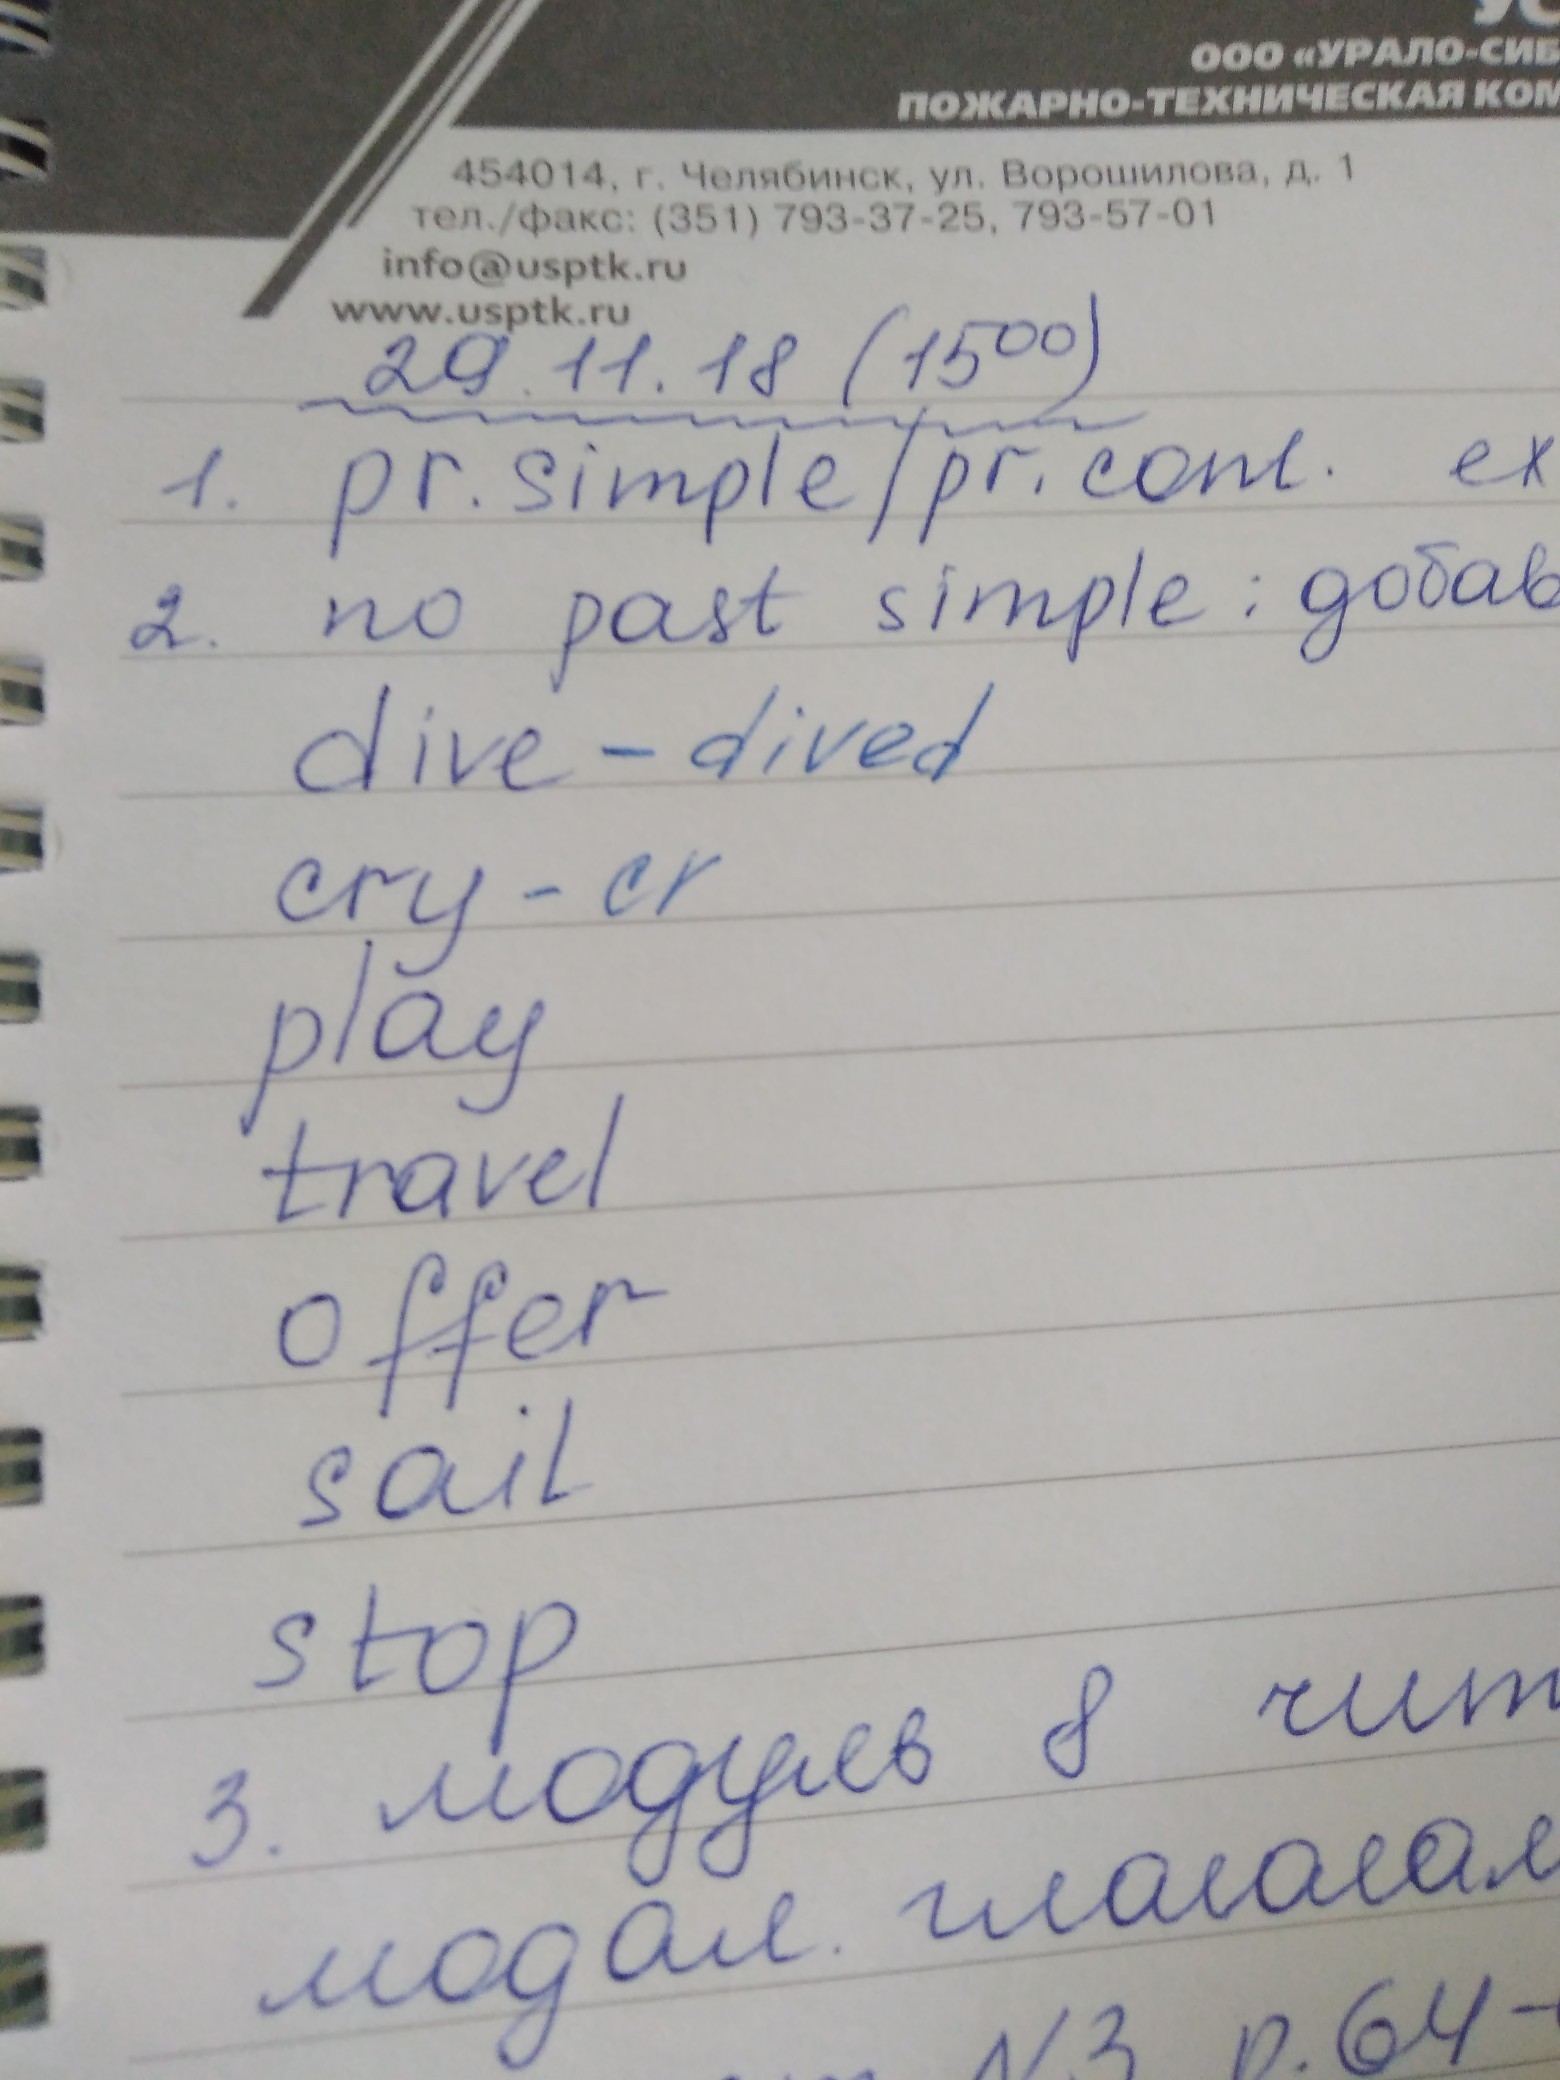 УС
ООО «УРАЛО-СИБ
ПОЖАРНО-ТЕХНИЧЕСКАЯ КОМ
454014, г. Челябинск, ул. Ворошилова, д. 1
тел./факс: (351) 793-37-25, 793-57-01
info@usptk.ru
www.usptk.ru
29.11.18 (15⁰⁰)
1. pr. simple/pr. cont. ex
2. по past simple : добав
dive - dived
cry - cr
play
travel
offer
sail
stop
3. модуль 8 чит
модал. глаголам
N.3 p.64-